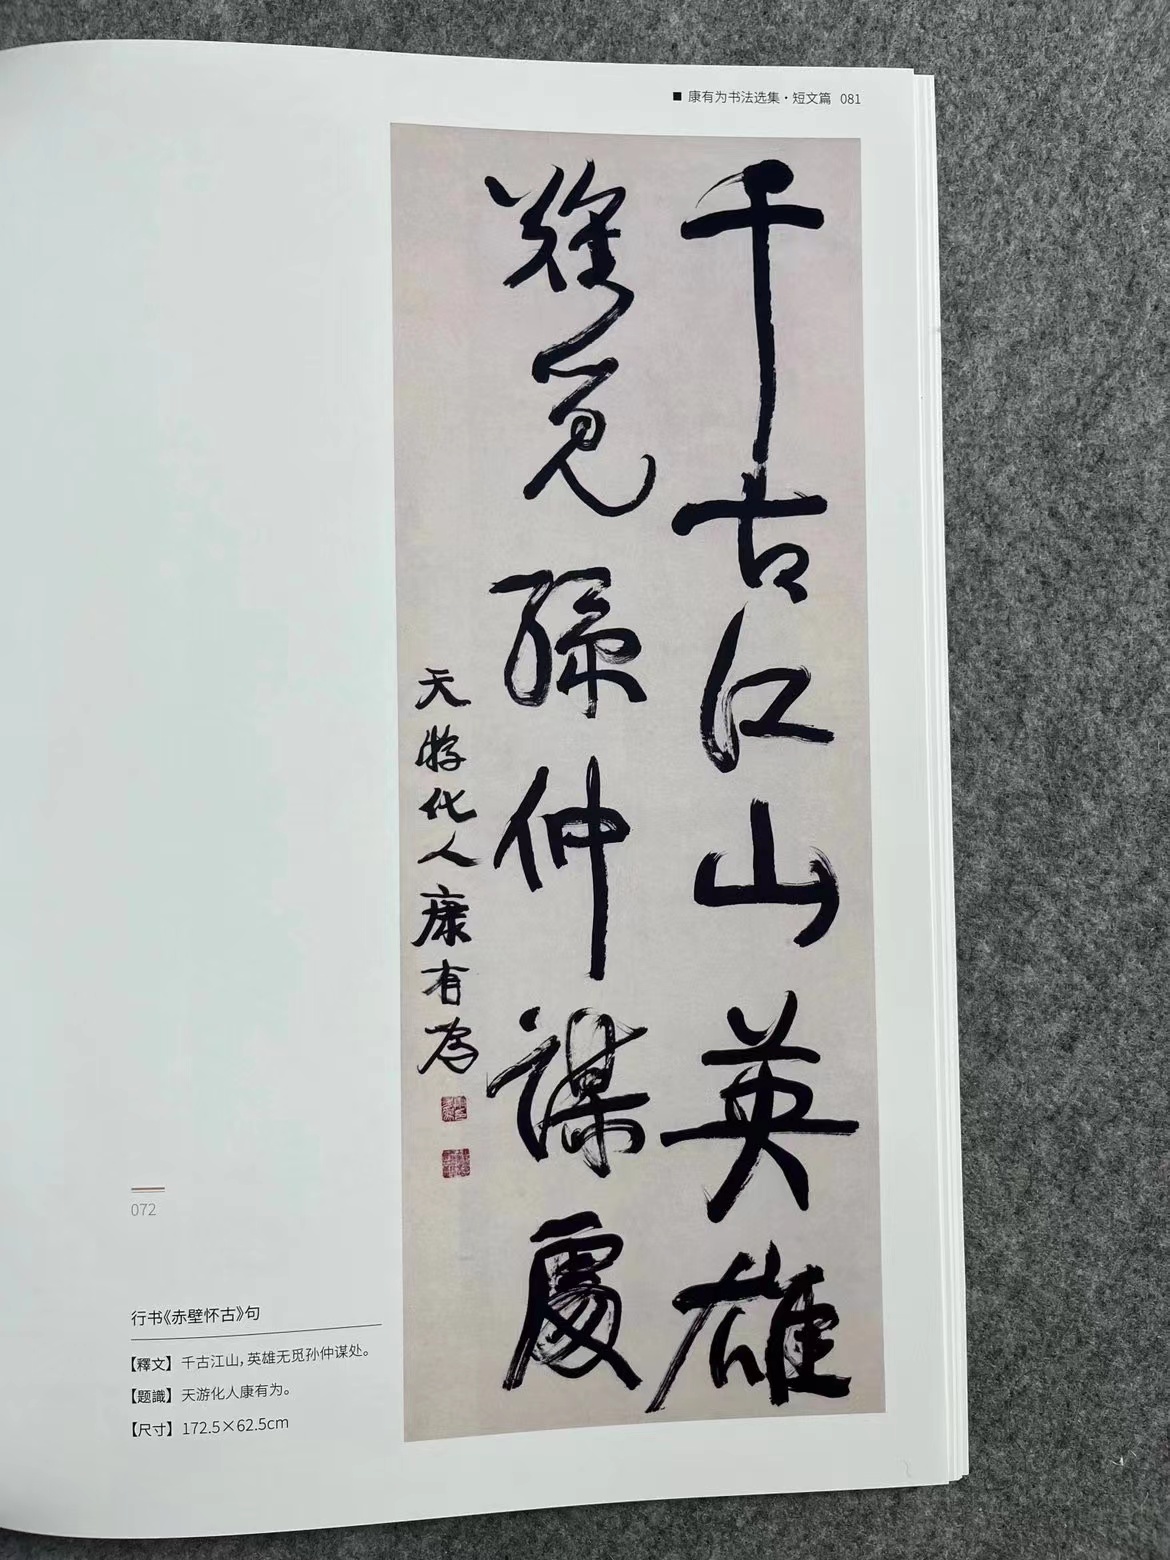 康有为书法选集·短文篇 081
千古江山英雄
難覓孫仲謀處
天游化人康有為
072
行书《赤壁怀古》句
【釋文】千古江山，英雄无觅孙仲谋处。
【题識】天游化人康有为。
【尺寸】172.5×62.5cm